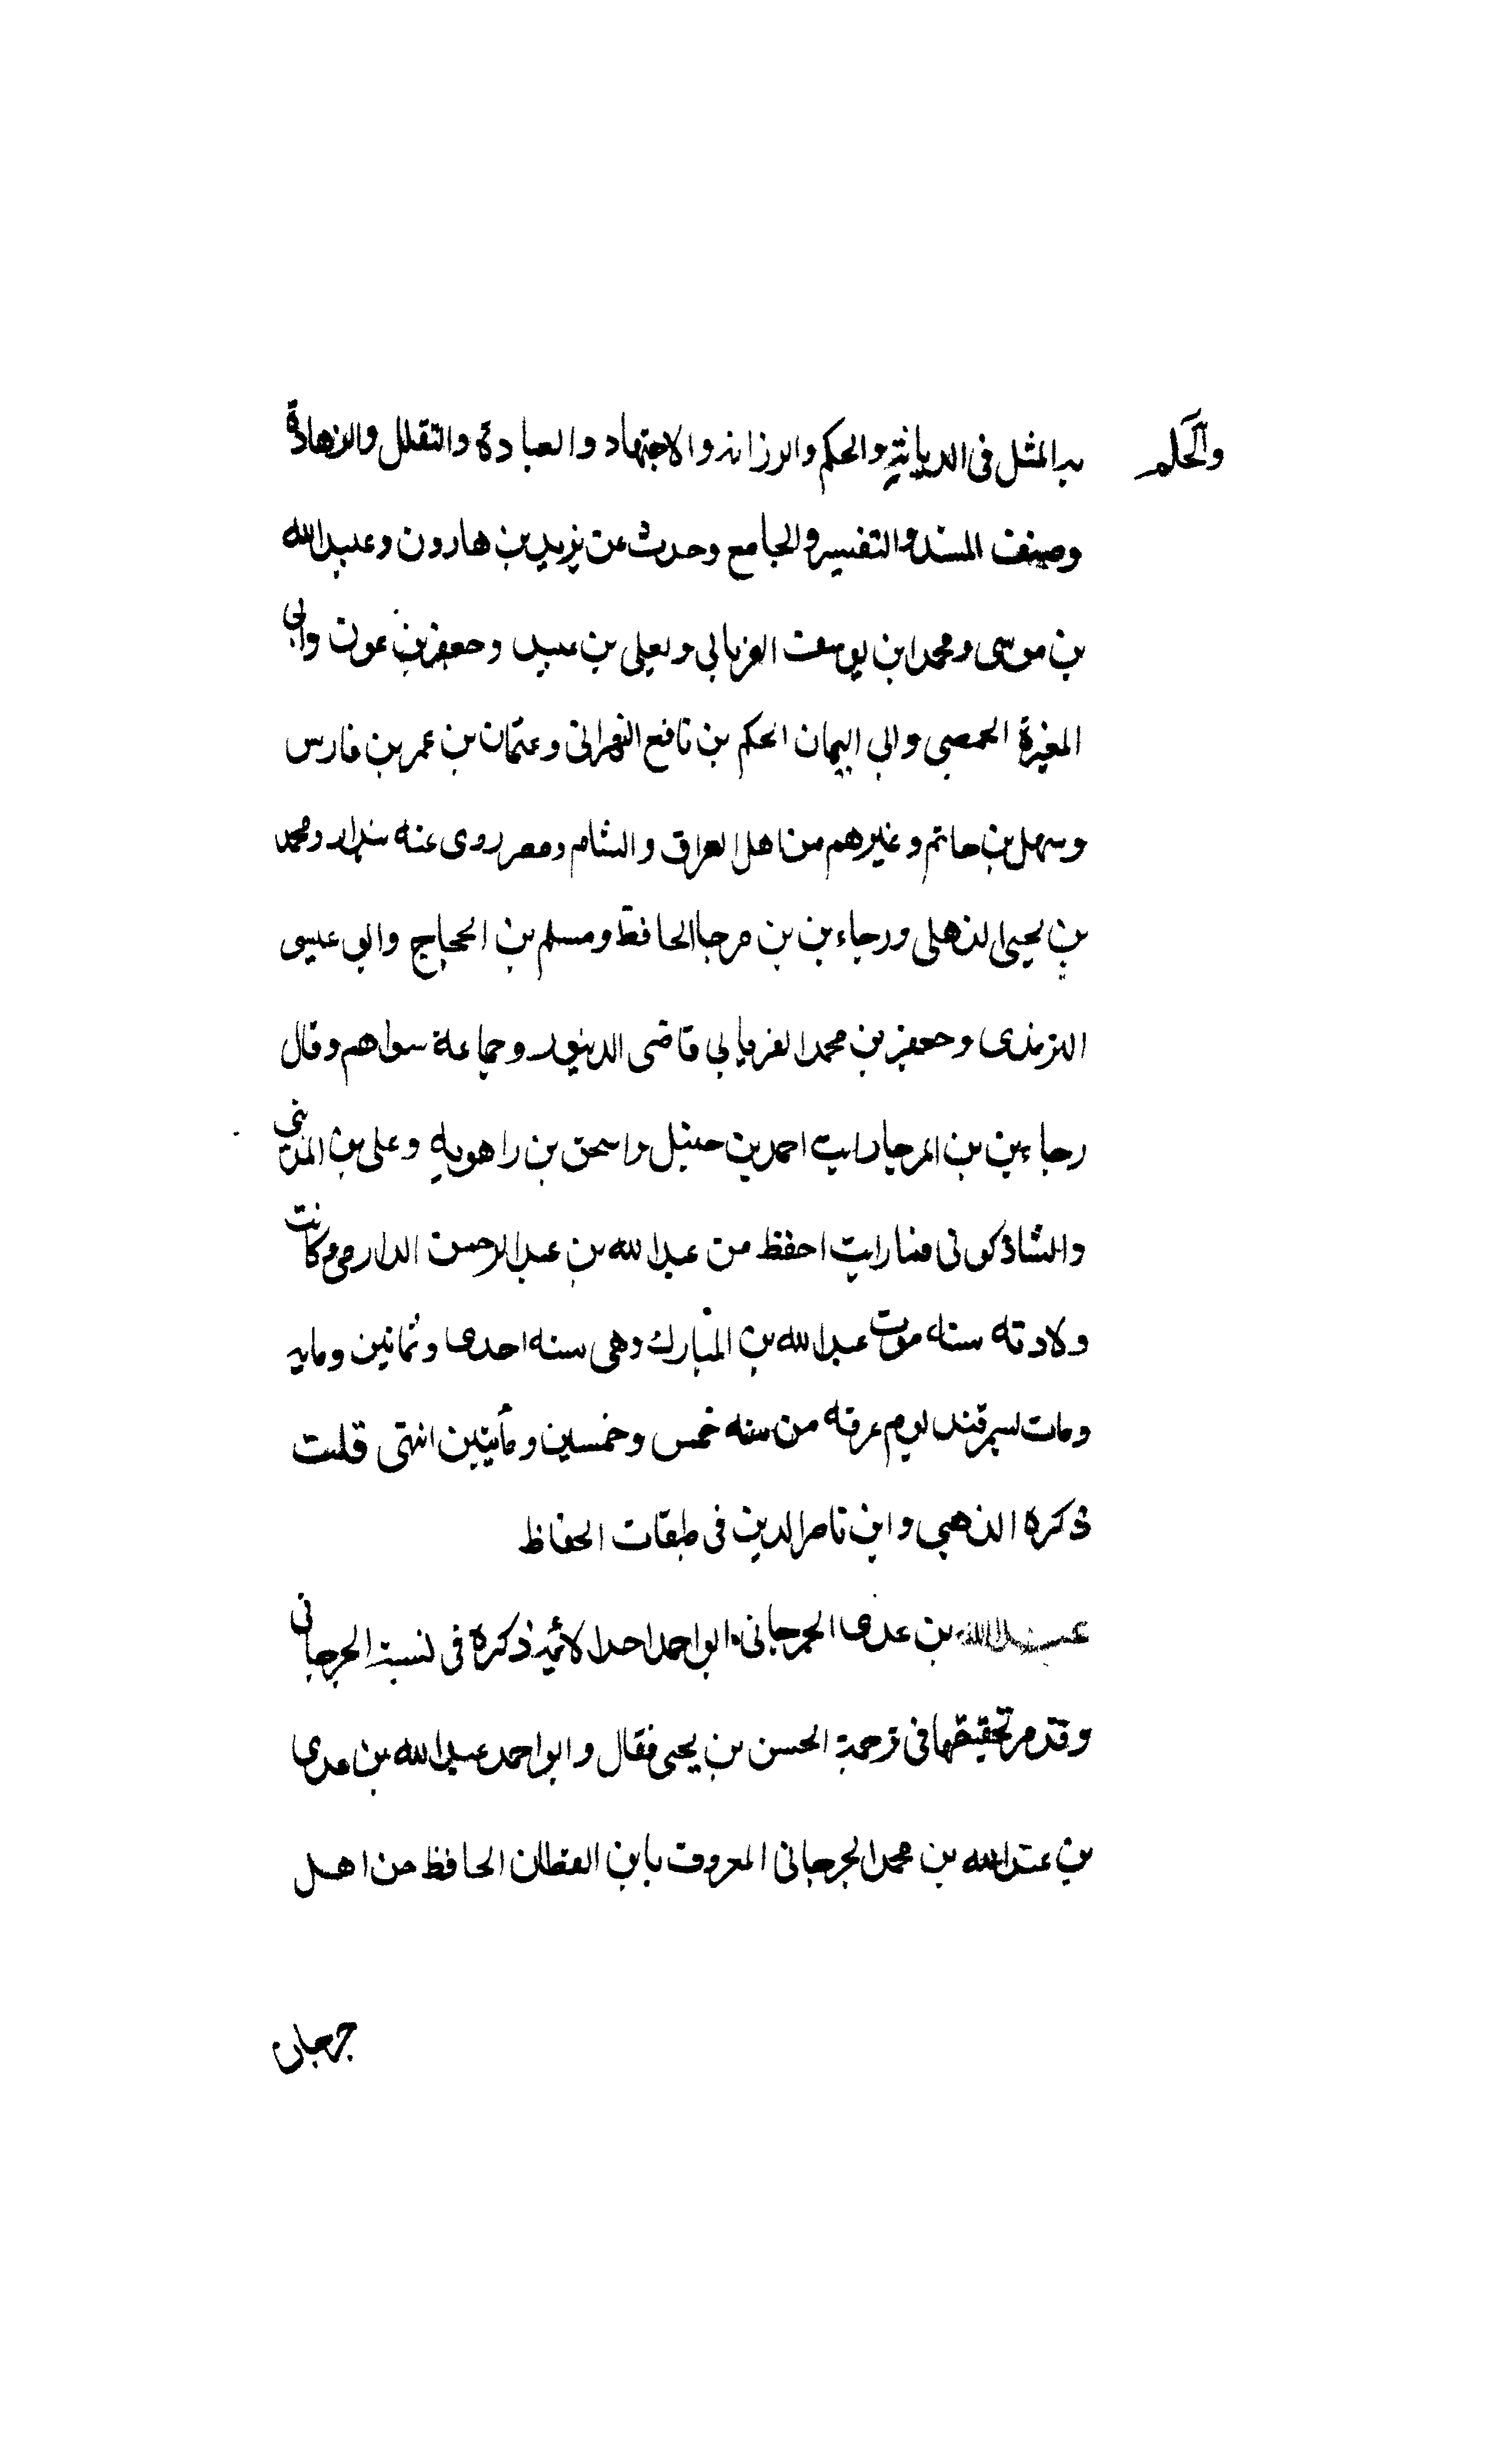 والحلم
به المثل فى الديانة والحكم والرزانه والاجتهاد والعبادة والتقلل والزهادة
وصنف المسند والتفسير والجامع وحدث عن يزيد بن هارون وعبيد الله
بن موسى ومحمد ابن يوسف الفريابي ويعلى بن عبيد وجعفر بن عون وابى
المغيرة الحمصي وابي اليمان الحكم بن نافع البهرانى وعثمان بن عمر بن فارس
وسهل بن حاتم وغيرهم من اهل العراق والشام ومصر روى عنه بندار ومحمد
بن يحيى الذهلى ورجاء بن بن مرجا الحافظ ومسلم بن الحجاج وابى عيسى
الترمذى وجعفر بن محمد الفريابي قاضى الدينور وجماعة سواهم وقال
رجاء بن بن المرجا رايت احمد بن حنبل واسحق بن راهويه وعلى بن المدينى
والشاذكونى فما رايت احفظ من عبد الله بن عبد الرحمن الدارمى وكانت
ولادته سنه موت عبد الله بن المبارك وهى سنه احدى وثمانين ومايه
ومات بسمرقند يوم عرفه من سنه خمس وخمسين ومأيتين انتهى قلت
ذكره الذهبي وابن ناصر الدين فى طبقات الحفاظ
عبد الله بن عدى الجرجانى ابو احمد احد الائمة ذكره فى نسبة الجرجانى
وقدم تحقيقها فى ترجمة الحسن بن يحيى فقال وابو احمد عبد الله بن عدى
بن عبد الله بن محمد الجرجانى المعروف بابن القطان الحافظ من اهل
جرجان